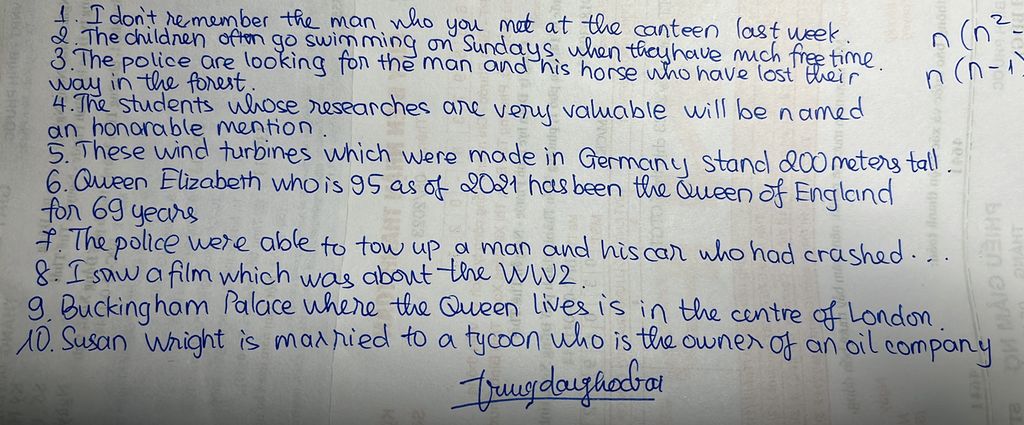 1. I don't remember the man who you met at the canteen last week.
2. The children often go swimming on Sundays when they have much free time.
3. The police are looking for the man and his horse who have lost their
way in the forest.
4. The students whose researches are very valuable will be named
an honorable mention.
5. These wind turbines which were made in Germany stand 200 meters tall.
6. Queen Elizabeth who is 95 as of 2021 has been the Queen of England
for 69 years
7. The police were able to tow up a man and his car who had crashed...
8. I saw a film which was about the WW2.
9. Buckingham Palace where the Queen lives is in the centre of London.
10. Susan Wright is married to a tycoon who is the owner of an oil company
n(n²-
n(n-1)